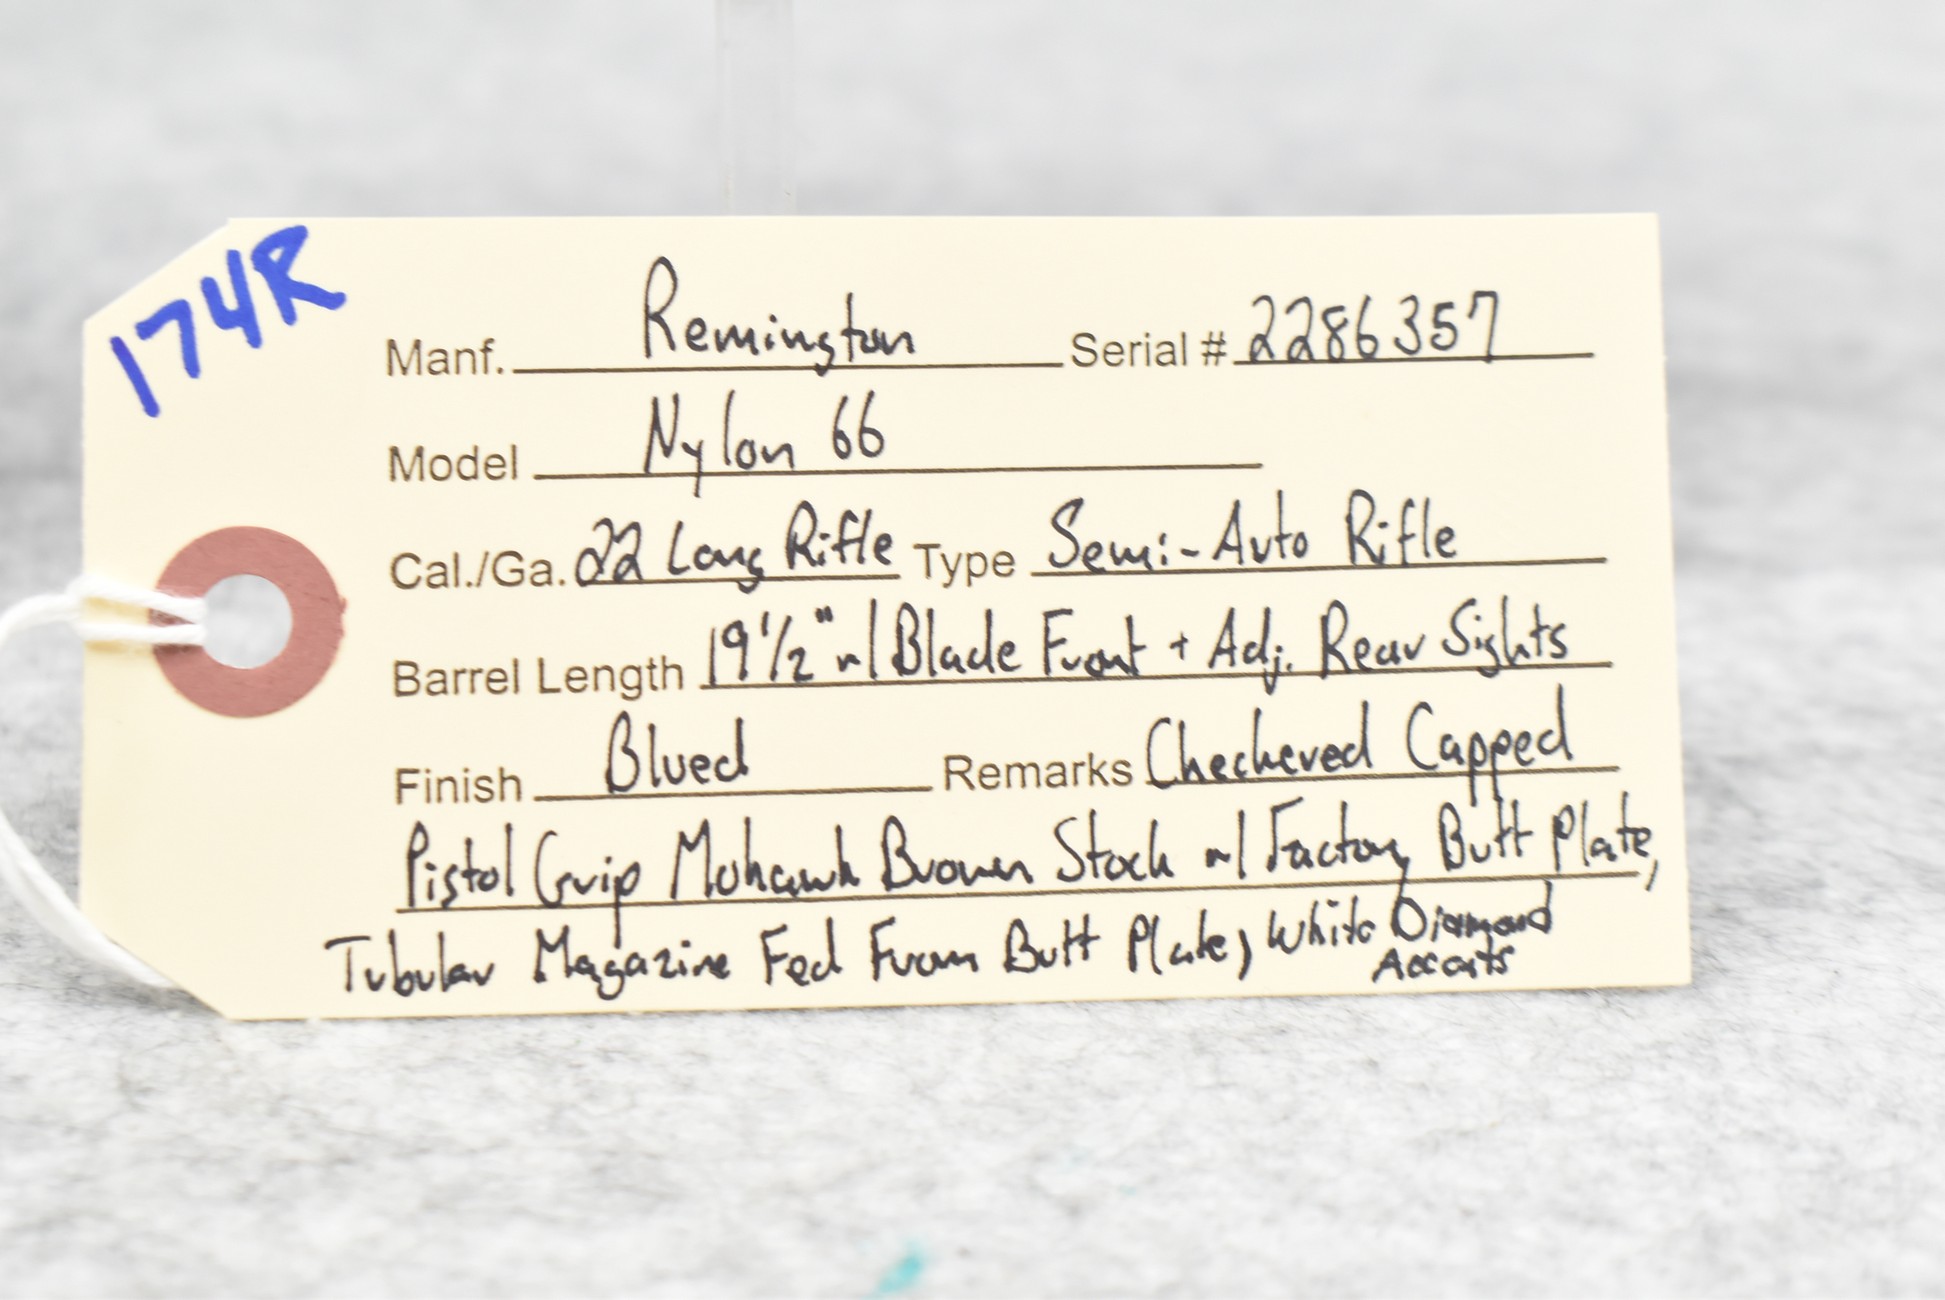 174R
Manf. Remington Serial # 2286357
Model Nylon 66
Cal./Ga. 22 Long Rifle Type Semi-Auto Rifle
Barrel Length 19 1/2" w/ Blade Front + Adj. Rear Sights
Finish Blued Remarks Checkered Capped
Pistol Grip Mohawk Brown Stock w/ Factory Butt Plate,
Tubular Magazine Fed From Butt Plate, White Diamond
Accents